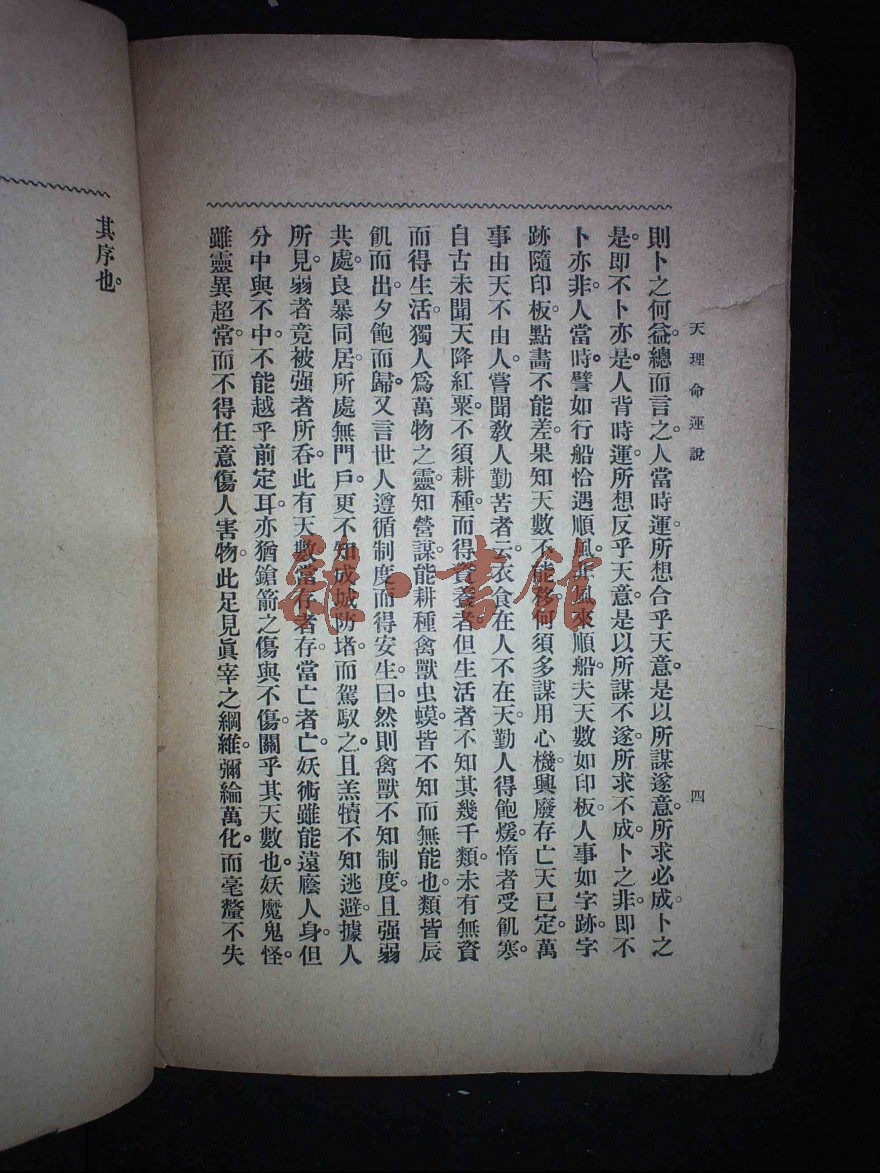 天理命運說
四
則卜之何益。總而言之。人當時運。所想合乎天意。是以所謀遂意。所求必成。卜之
是。即不卜亦是。人背時運。所想反乎天意。是以所謀不遂。所求不成。卜之非。即不
卜亦非。人當時。譬如行船恰遇順風。非風來順船。夫天數如印板。人事如字跡。字
跡隨印板。點畫不能差。果知天數不能移。何須多謀用心機。興廢存亡天已定。萬
事由天不由人。嘗聞敎人勤苦者云。衣食在人不在天。勤人得飽煖。惰者受飢寒。
自古未聞天降紅粟。不須耕種。而得資養者。但生活者不知其幾千類。未有無資
而得生活。獨人爲萬物之靈。知營謀。能耕種。禽獸虫蟆。皆不知而無能也。類皆辰
飢而出。夕飽而歸。又言世人遵循制度而得安生。曰。然則禽獸不知制度。且强弱
共處。良暴同居。所處無門戶。更不知成城防堵。而駕馭之。且羔犢不知逃避。據人
所見。弱者竟被强者所呑。此有天數。當存者存。當亡者亡。妖術雖能遠廕人身。但
分中與不中。不能越乎前定耳。亦猶鎗箭之傷與不傷。關乎其天數也。妖魔鬼怪。
雖靈異超常。而不得任意傷人害物。此足見眞宰之綱維。彌綸萬化。而毫釐不失
其序也。
雜·書館